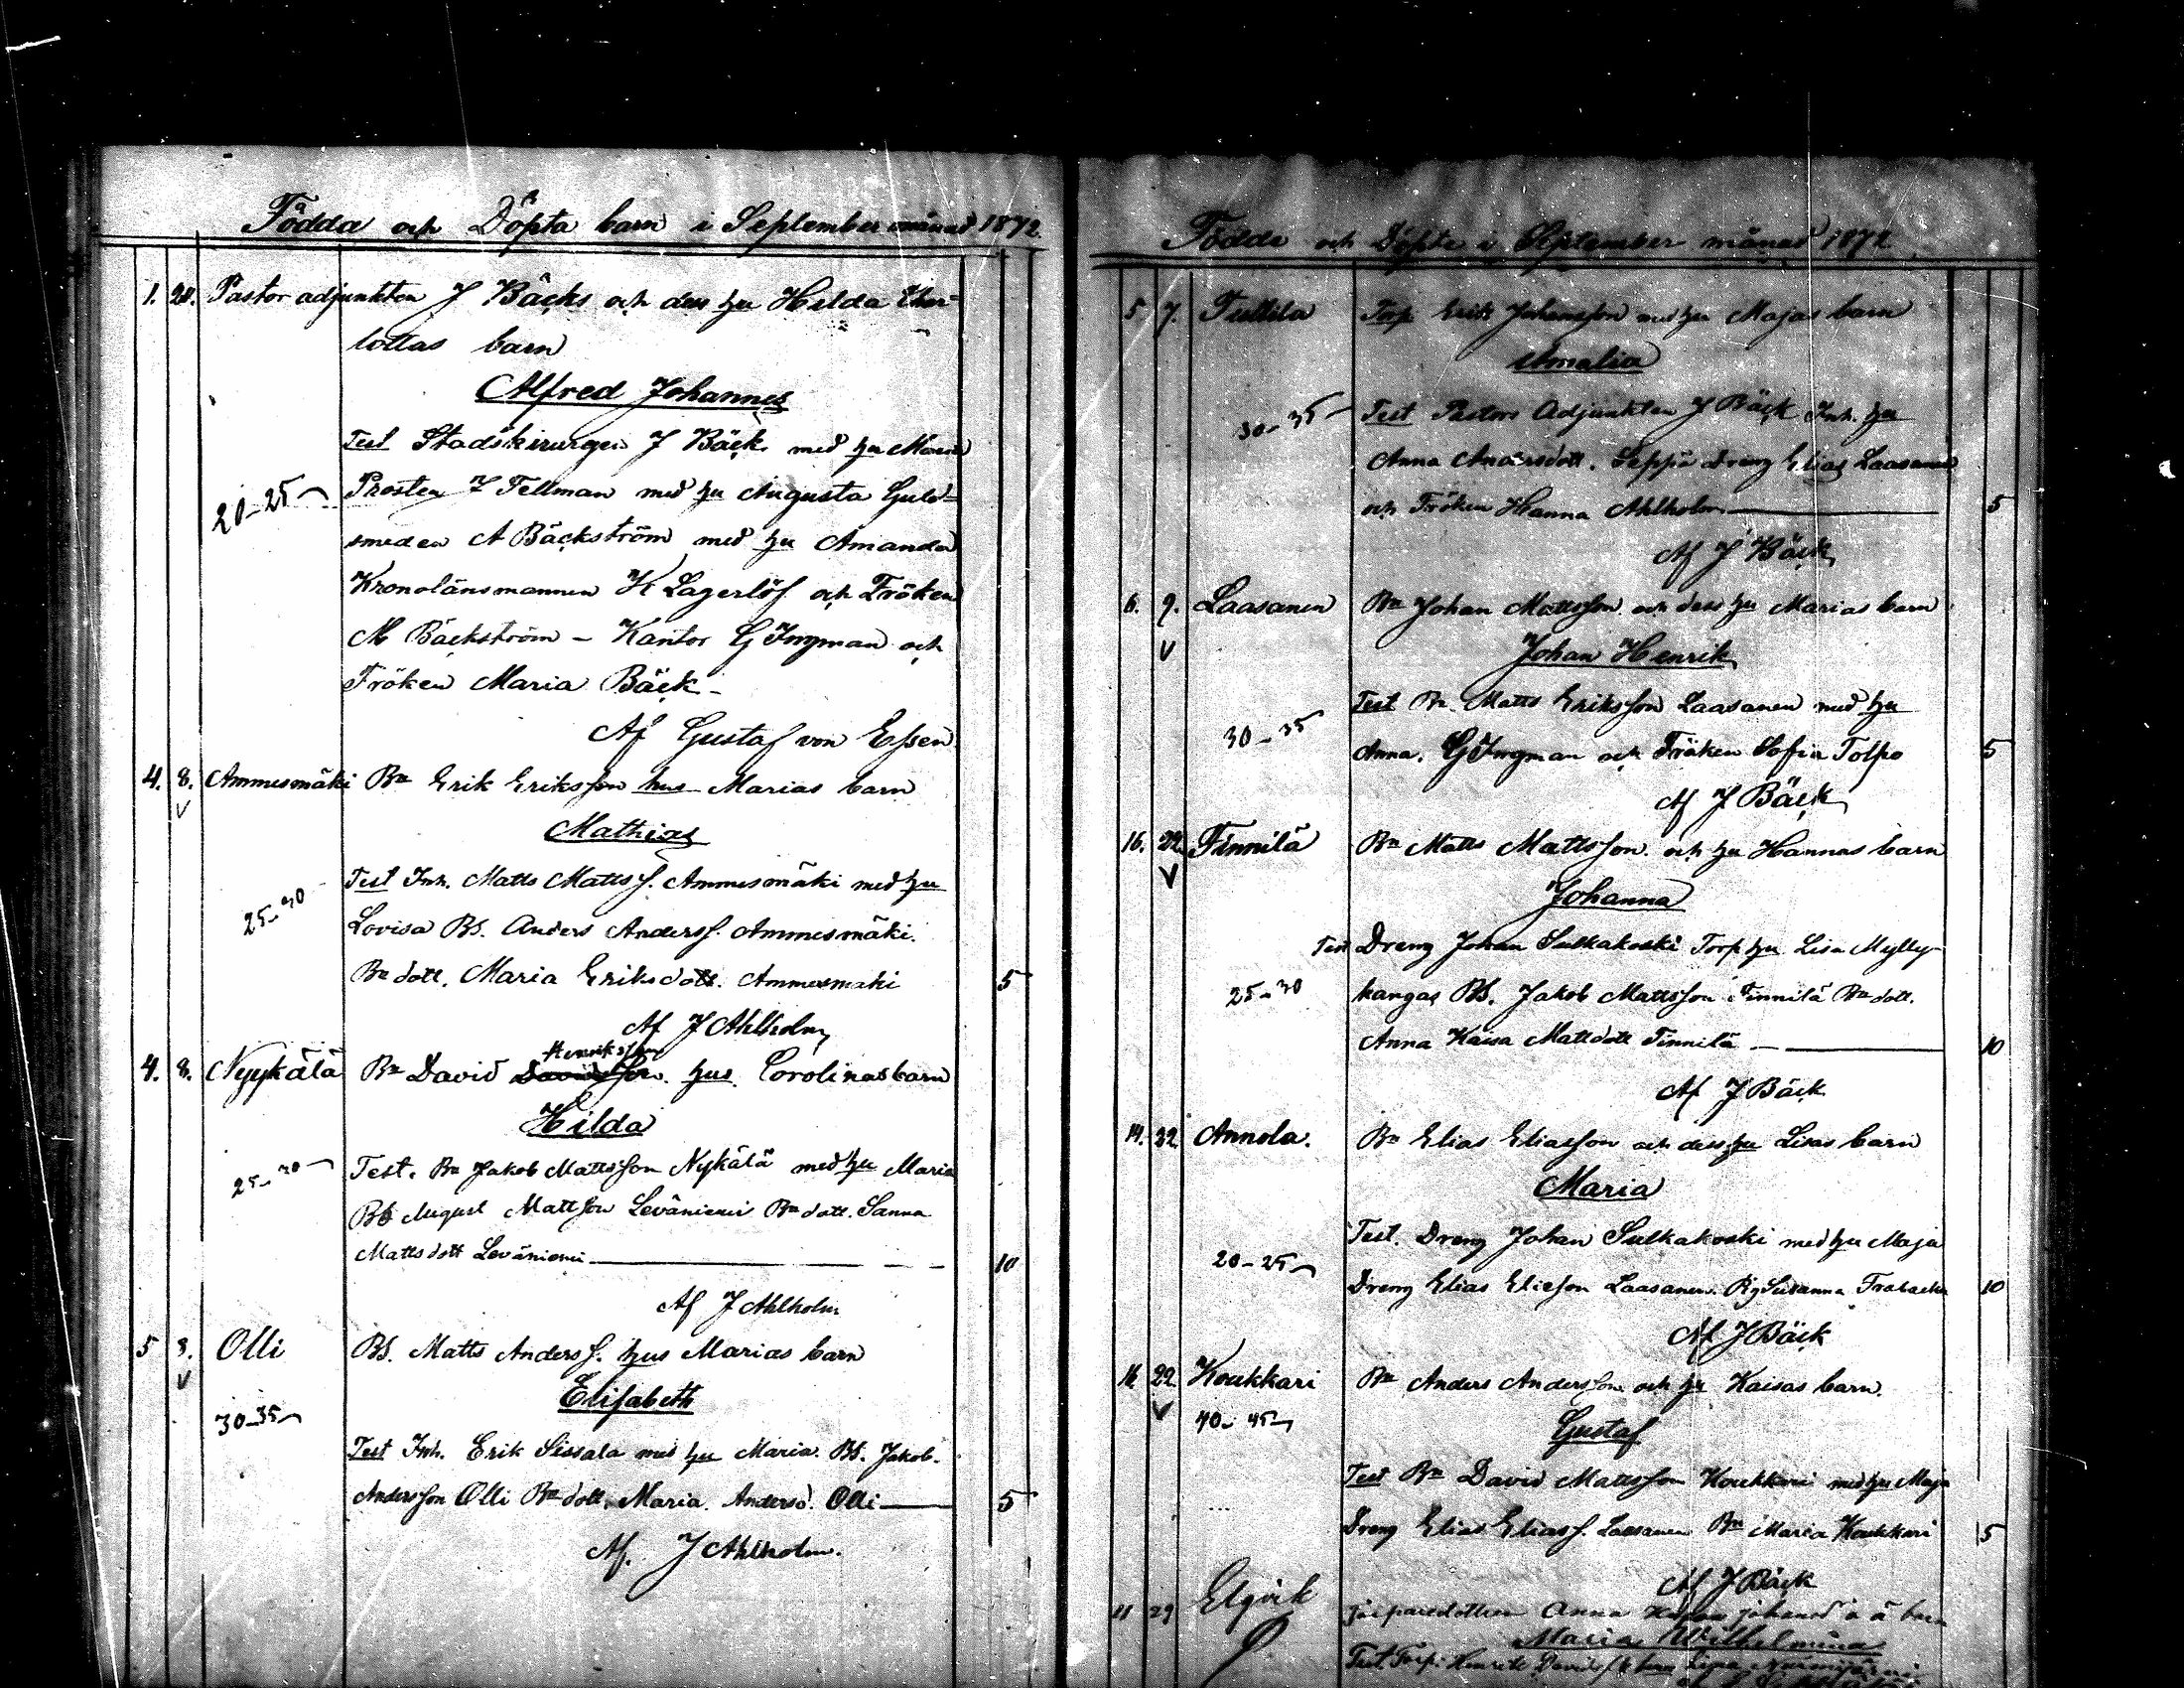 Födda och Döpta barn i September månad 1872.
1. 20. Pastor adjunkten J Bäcks och dess hu Hilda Char-
lottas barn
Alfred Johannes
Test Stadskirurgen J Bäck med hu Maria
20-25 Prosten J Tellman med hu Augusta Guld-
smeden A Bäckström med hu Amanda
Kronolänsmannen K Lagerlöf och Fröken
M Bäckström - Kantor G Ingman och
Fröken Maria Bäck -
Af Gustaf von Essen
4. 8. Ammesmäki Bn Erik Eriksson hus Marias barn
V
Mathias
Test Inh. Matts Matts s. Ammesmäki med hu
25-30
Lovisa BS. Anders Anders s. Ammesmäki.
Bn dott. Maria Eriksdott. Ammesmäki 5
Af J Ahlholm
Henriksson
4. 8. Nyykälä Bn David Davidsson. hus. Carolinas barn
Hilda
25-30 Test. Bn Jakob Mattsson Nykälä med hu Maria
BS August Mattsson Leväniemi Bn dott. Sanna
Mattsdott Leväniemi 10
Af J Ahlholm
5 8. Olli BS. Matts Anders s. hus Marias barn
V
Elisabeth
30-35
Test Inh. Erik Sissala med hu Maria. BS. Jakob.
Andersson Olli Bn dott. Maria. Andersd. Olli 5
Af. J Ahlholm.
Födde och Döpte i September månad 1872
5 7. Tullila Torp Erik Johansson med hu Majas barn
Amalia
30-35 Test Pastors Adjunkten J Bäck Inh. hu
Anna Andersdott. Seppä Dreng Elias Laasanen
och Fröken Hanna Ahlholm 5
Af J Bäck
6. 9. Laasanen Bn Johan Mattsson och dess hu Marias barn
V
Johan Henrik
Test Bn Matts Eriksson Laasanen med hu
30-35
Anna. G Ingman och Fröken Sofia Tolpo 5
Af J Bäck
16. 22. Finnilä Bn Matts Mattsson. och hu Hannas barn
V
Johanna
Test Dreng Johan Sulkakoski Torp hu Lisa Mylly-
25-30 kangas BS. Jakob Mattsson Finnilä Bn dott.
Anna Kaisa Mattsdott Finnilä 10
Af J Bäck
14. 22 Annola. Bn Elias Eliasson och dess hu Lisas barn
Maria
Test. Dreng Johan Sulkakoski med hu Maja
20-25
Dreng Elias Eliasson Laasanen. Pig Susanna 10
Af J Bäck
16 22 Koukkari Bn Anders Andersson och hu Kaisas barn.
V 40-45
Gustaf
Test Bn David Mattsson Koukkari med hu Maja
Dreng Elias Elias s. Laasanen Bn Maria Koukkari 5
Af J Bäck
29 Elgvik Anna barn
Maria Wilhelmina
Test Torp. Henrik